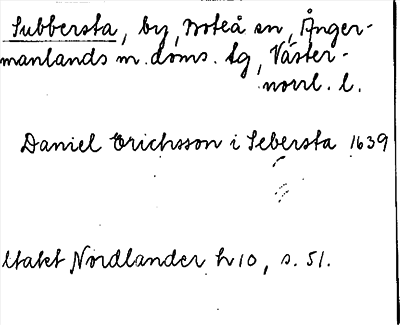 Subbersta, by, Boteå sn, Ånger-
manlands m. doms. tg, Väster-
norrl. l.
Daniel Erichsson i Sebersta 1639
Utakt Nordlander h 10, s. 51.